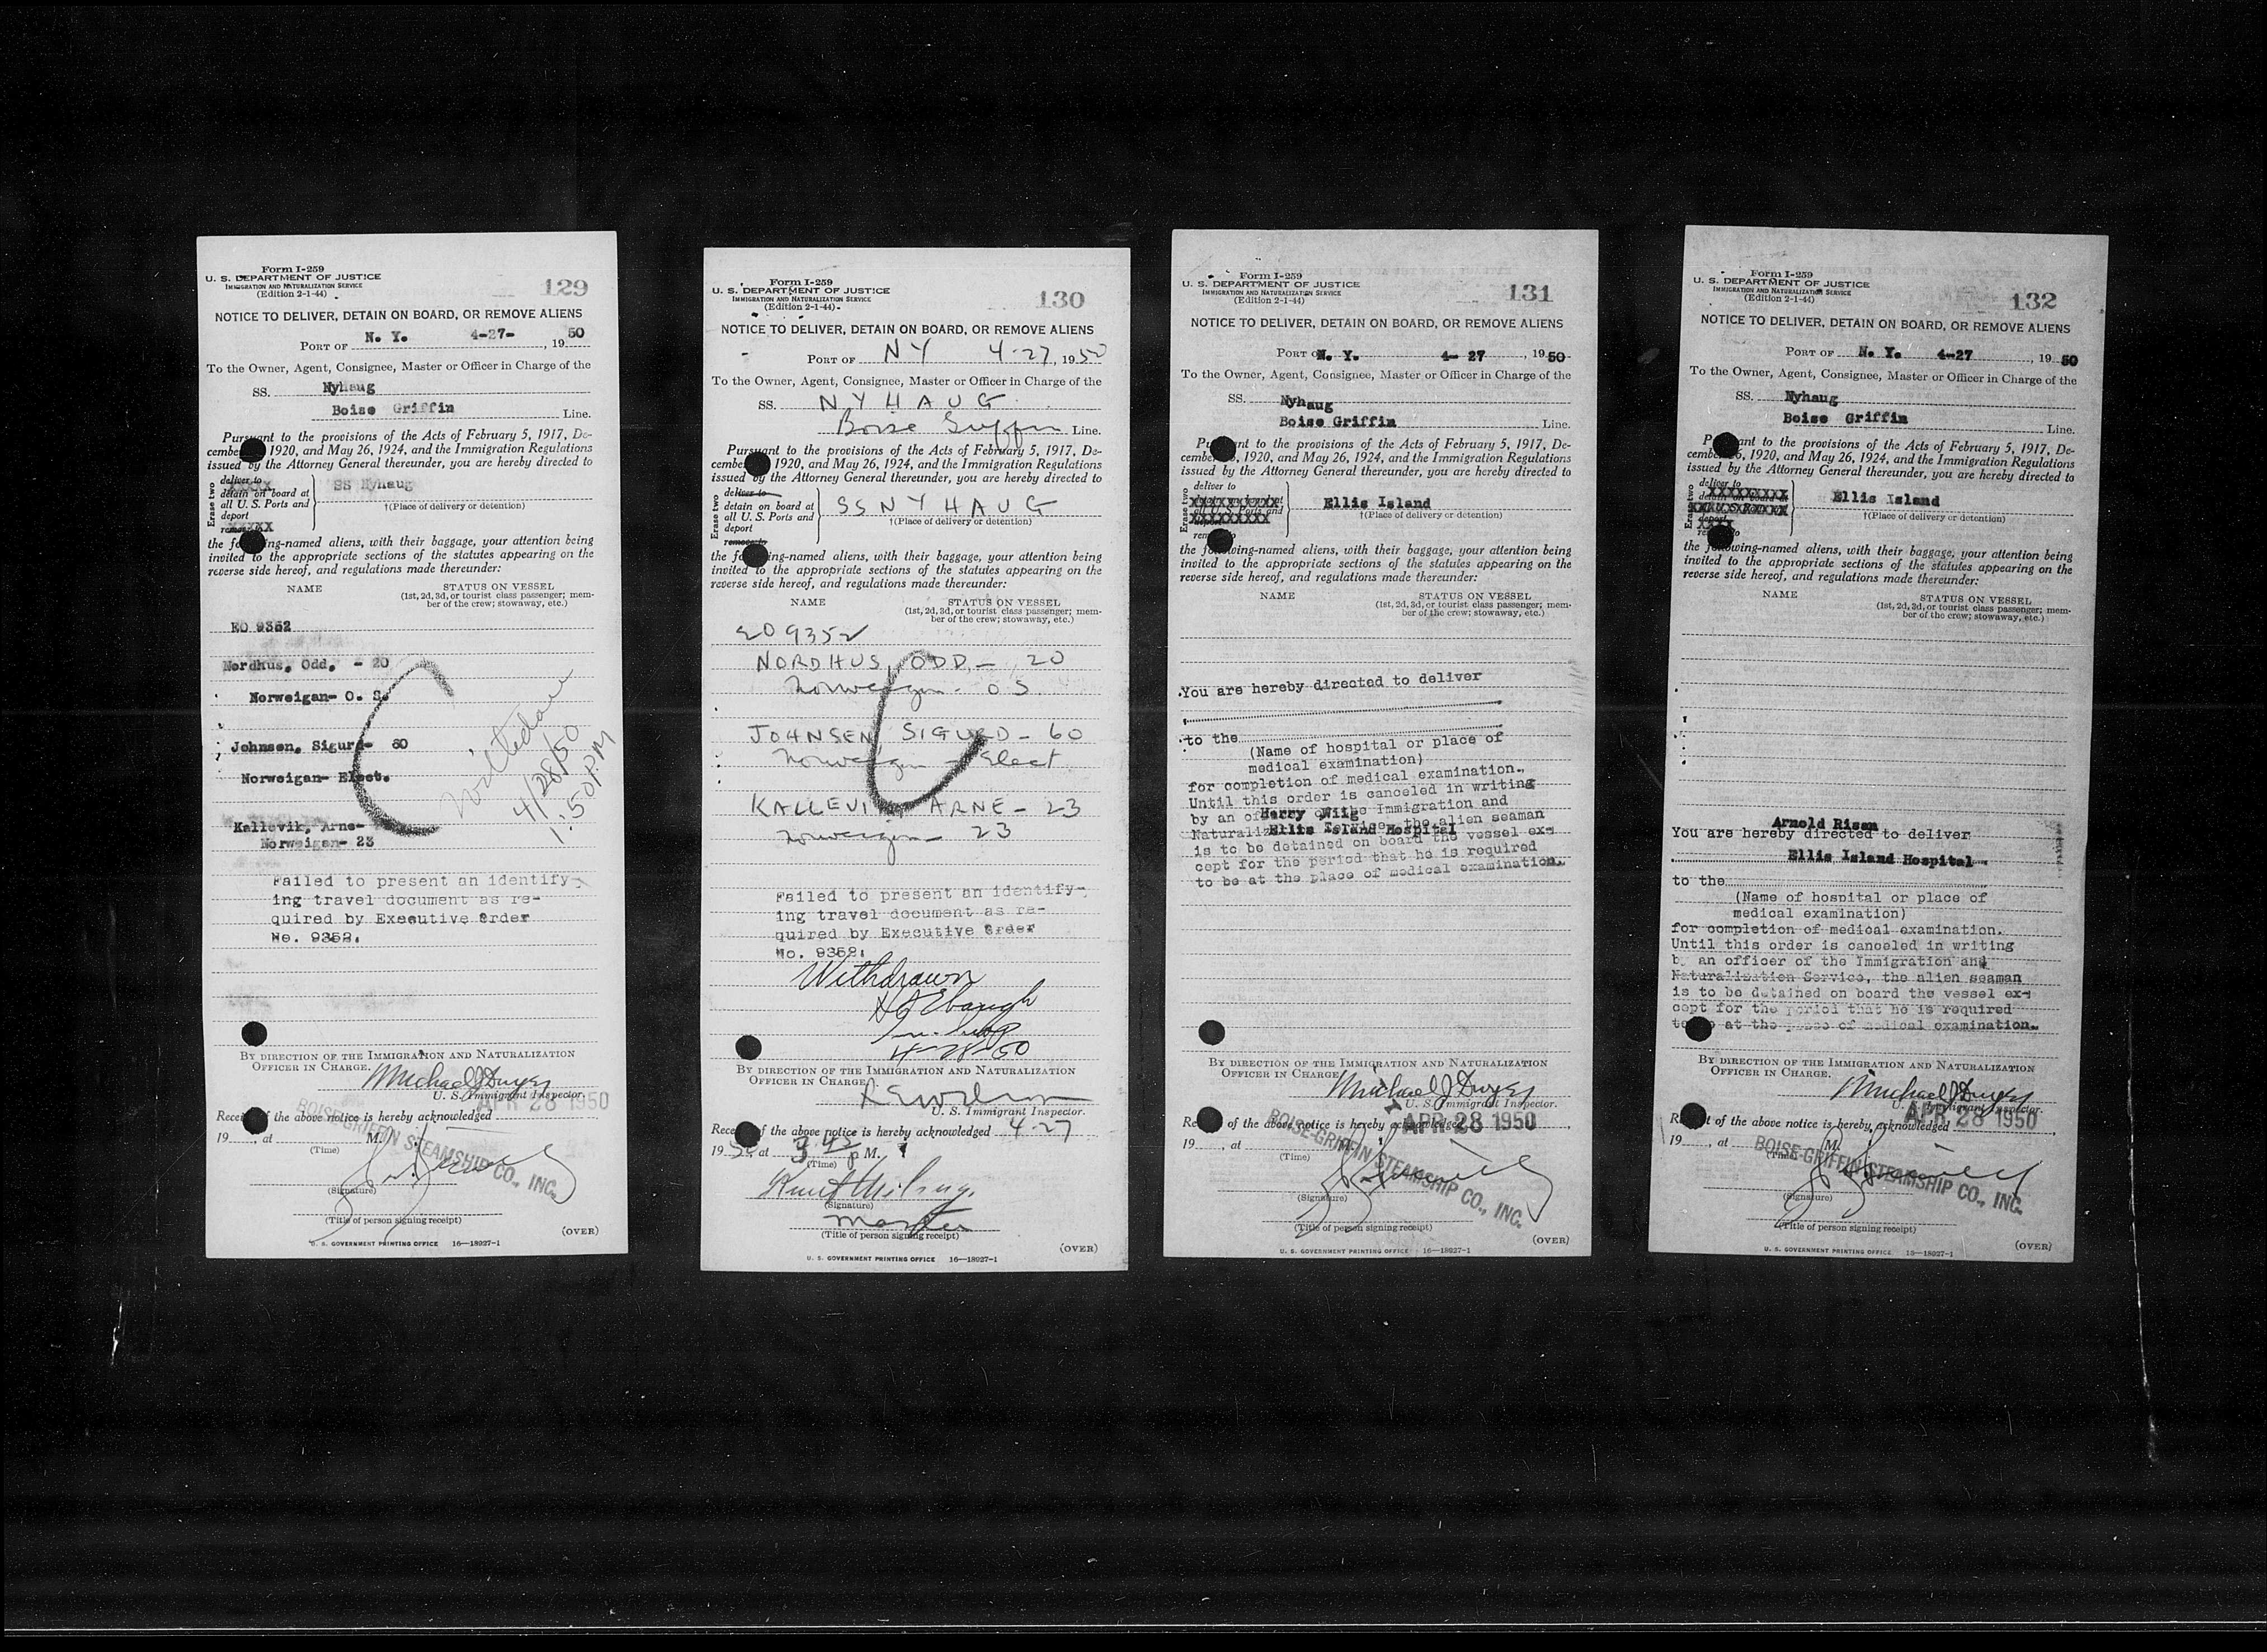 Form I-259
U. S. DEPARTMENT OF JUSTICE
IMMIGRATION AND NATURALIZATION SERVICE
(Edition 2-1-44)
129
NOTICE TO DELIVER, DETAIN ON BOARD, OR REMOVE ALIENS
PORT OF N. Y. 4-27-, 1950
To the Owner, Agent, Consignee, Master or Officer in Charge of the
SS. Nyhaug
Boise Griffin Line.
Pursuant to the provisions of the Acts of February 5, 1917, De-
cember 1920, and May 26, 1924, and the Immigration Regulations
issued by the Attorney General thereunder, you are hereby directed to
Erase two
deliver to
detain on board at
all U. S. Ports and
deport
remove to
SS Nyhaug
†(Place of delivery or detention)
the following-named aliens, with their baggage, your attention being
invited to the appropriate sections of the statutes appearing on the
reverse side hereof, and regulations made thereunder:
NAME STATUS ON VESSEL
(1st, 2d, 3d, or tourist class passenger; mem-
ber of the crew; stowaway, etc.)
EO 9352
Nordhus, Odd, - 20
Norweigan- O. S.
Johnsen, Sigurd- 60
Norweigan- Elect.
Kallevik, Arne-
Norweigan- 23
4/28/50
1:50PM
Failed to present an identify-
ing travel document as re-
quired by Executive Order
No. 9352.
BY DIRECTION OF THE IMMIGRATION AND NATURALIZATION
OFFICER IN CHARGE.
Michael J Dwyer
U. S. Immigrant Inspector.
APR 28 1950
Receipt of the above notice is hereby acknowledged
19, at M.
(Time)
BOISE-GRIFFIN STEAMSHIP CO., INC.
(Signature)
(Title of person signing receipt)
(OVER)
U. S. GOVERNMENT PRINTING OFFICE 16—18927-1
Form I-259
U. S. DEPARTMENT OF JUSTICE
IMMIGRATION AND NATURALIZATION SERVICE
(Edition 2-1-44)
130
NOTICE TO DELIVER, DETAIN ON BOARD, OR REMOVE ALIENS
PORT OF NY 4-27, 1950
To the Owner, Agent, Consignee, Master or Officer in Charge of the
SS. NYHAUG
Boise Griffin Line.
Pursuant to the provisions of the Acts of February 5, 1917, De-
cember 1920, and May 26, 1924, and the Immigration Regulations
issued by the Attorney General thereunder, you are hereby directed to
Erase two
deliver to
detain on board at
all U. S. Ports and
deport
remove to
SS NYHAUG
†(Place of delivery or detention)
the following-named aliens, with their baggage, your attention being
invited to the appropriate sections of the statutes appearing on the
reverse side hereof, and regulations made thereunder:
NAME STATUS ON VESSEL
(1st, 2d, 3d, or tourist class passenger; mem-
ber of the crew; stowaway, etc.)
EO 9352
NORDHUS, ODD, - 20
Norweigan - OS
JOHNSEN, SIGURD - 60
Norweigan - Elect
KALLEVIK ARNE - 23
Norweigan - 23
Failed to present an identify-
ing travel document as re-
quired by Executive Order
No. 9352.
Withdrawn
Ebaugh
4-28-50
BY DIRECTION OF THE IMMIGRATION AND NATURALIZATION
OFFICER IN CHARGE.
REWilson
U. S. Immigrant Inspector.
Receipt of the above notice is hereby acknowledged 4-27
1950, at 3:45 p M.
(Time)
(Signature)
Master
(Title of person signing receipt)
(OVER)
U. S. GOVERNMENT PRINTING OFFICE 16—18927-1
Form I-259
U. S. DEPARTMENT OF JUSTICE
IMMIGRATION AND NATURALIZATION SERVICE
(Edition 2-1-44)
131
NOTICE TO DELIVER, DETAIN ON BOARD, OR REMOVE ALIENS
PORT OF N. Y. 4- 27, 1950-
To the Owner, Agent, Consignee, Master or Officer in Charge of the
SS. Nyhaug
Boise Griffin Line.
Pursuant to the provisions of the Acts of February 5, 1917, De-
cember 5, 1920, and May 26, 1924, and the Immigration Regulations
issued by the Attorney General thereunder, you are hereby directed to
Erase two
deliver to
XXXXXXXXXXX
all U. S. Ports and
XXXXXXXXXX
remove to
Ellis Island
†(Place of delivery or detention)
the following-named aliens, with their baggage, your attention being
invited to the appropriate sections of the statutes appearing on the
reverse side hereof, and regulations made thereunder:
NAME STATUS ON VESSEL
(1st, 2d, 3d, or tourist class passenger; mem-
ber of the crew; stowaway, etc.)
You are hereby directed to deliver
to the
(Name of hospital or place of
medical examination)
for completion of medical examination.
Until this order is canceled in writing
by an officer of the Immigration and
Harry Wiig
Naturalization Service, the alien seaman
Ellis Island Hospital
is to be detained on board the vessel ex-
cept for the period that he is required
to be at the place of medical examination.
BY DIRECTION OF THE IMMIGRATION AND NATURALIZATION
OFFICER IN CHARGE.
Michael J Dwyer
U. S. Immigrant Inspector.
APR 28 1950
Receipt of the above notice is hereby acknowledged
19, at
(Time)
BOISE-GRIFFIN STEAMSHIP CO., INC.
(Signature)
(Title of person signing receipt)
(OVER)
U. S. GOVERNMENT PRINTING OFFICE 16—18927-1
Form I-259
U. S. DEPARTMENT OF JUSTICE
IMMIGRATION AND NATURALIZATION SERVICE
(Edition 2-1-44)
132
NOTICE TO DELIVER, DETAIN ON BOARD, OR REMOVE ALIENS
PORT OF N. Y. 4-27, 1950
To the Owner, Agent, Consignee, Master or Officer in Charge of the
SS. Nyhaug
Boise Griffin Line.
Pursuant to the provisions of the Acts of February 5, 1917, De-
cember 5, 1920, and May 26, 1924, and the Immigration Regulations
issued by the Attorney General thereunder, you are hereby directed to
Erase two
deliver to
XXXXXXXXX
detain on board at
deport
remove to
Ellis Island
†(Place of delivery or detention)
the following-named aliens, with their baggage, your attention being
invited to the appropriate sections of the statutes appearing on the
reverse side hereof, and regulations made thereunder:
NAME STATUS ON VESSEL
(1st, 2d, 3d, or tourist class passenger; mem-
ber of the crew; stowaway, etc.)
Arnold Risan
You are hereby directed to deliver
Ellis Island Hospital
to the
(Name of hospital or place of
medical examination)
for completion of medical examination.
Until this order is canceled in writing
by an officer of the Immigration and
Naturalization Service, the alien seaman
is to be detained on board the vessel ex-
cept for the period that he is required
to be at the place of medical examination.
BY DIRECTION OF THE IMMIGRATION AND NATURALIZATION
OFFICER IN CHARGE.
Michael J Dwyer
U. S. Immigrant Inspector.
APR 28 1950
Receipt of the above notice is hereby acknowledged
19, at M.
(Time)
BOISE-GRIFFIN STEAMSHIP CO., INC.
(Signature)
(Title of person signing receipt)
(OVER)
U. S. GOVERNMENT PRINTING OFFICE 16—18927-1